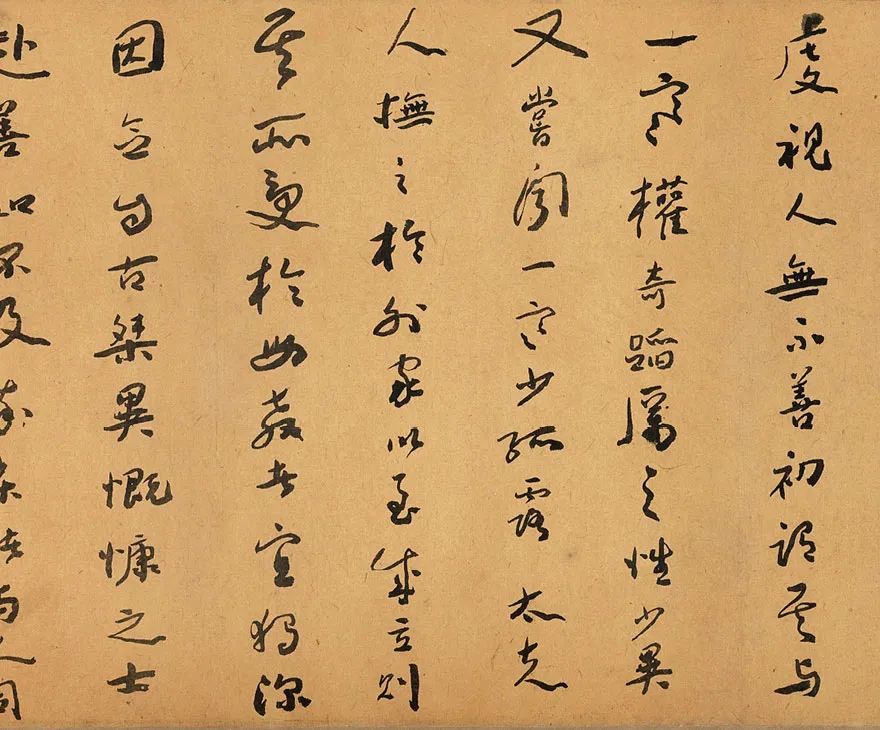 虔視人無不善初謂其与
一權奇蹈厲之性少異
又嘗聞一少孤露太夫
人撫之於外家以至成立則
其所更於母教者宜獨深
因念自古桀異慨慷之士
赴善如不及